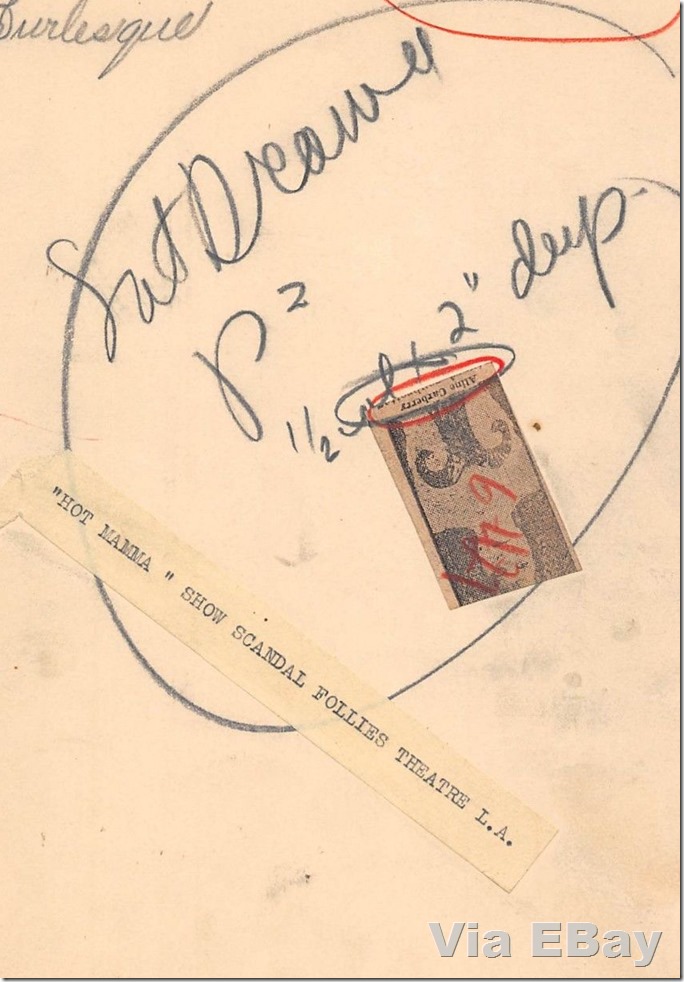 Burlesque
Sat Drama
P 2
1 1/2 wd x 2" deep
Aline Carberry
"HOT MAMMA " SHOW SCANDAL FOLLIES THEATRE L.A.
Via EBay